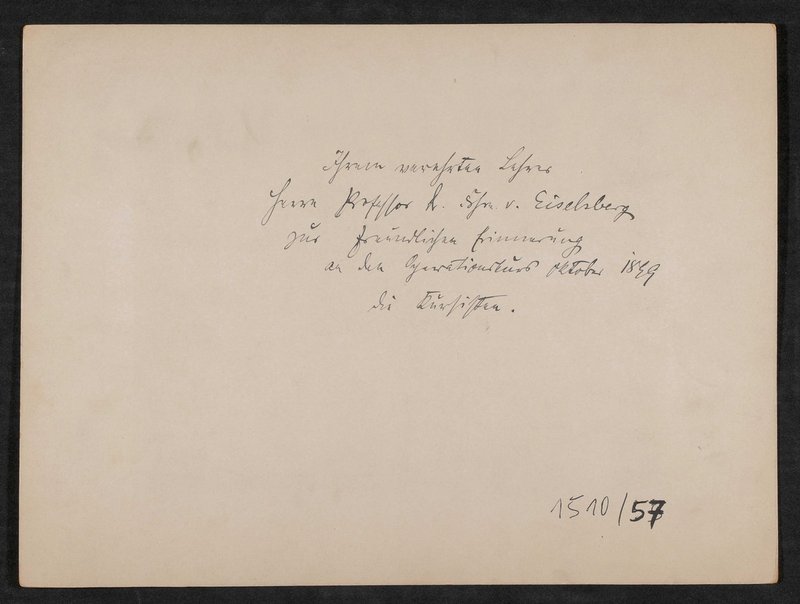 Ihrem verehrten Lehrer
Herrn Professor Dr. Frhr. v. Eiselsberg
zur freundlichen Erinnerung
an den Operationskurs Oktober
die Kursisten.
1510/57